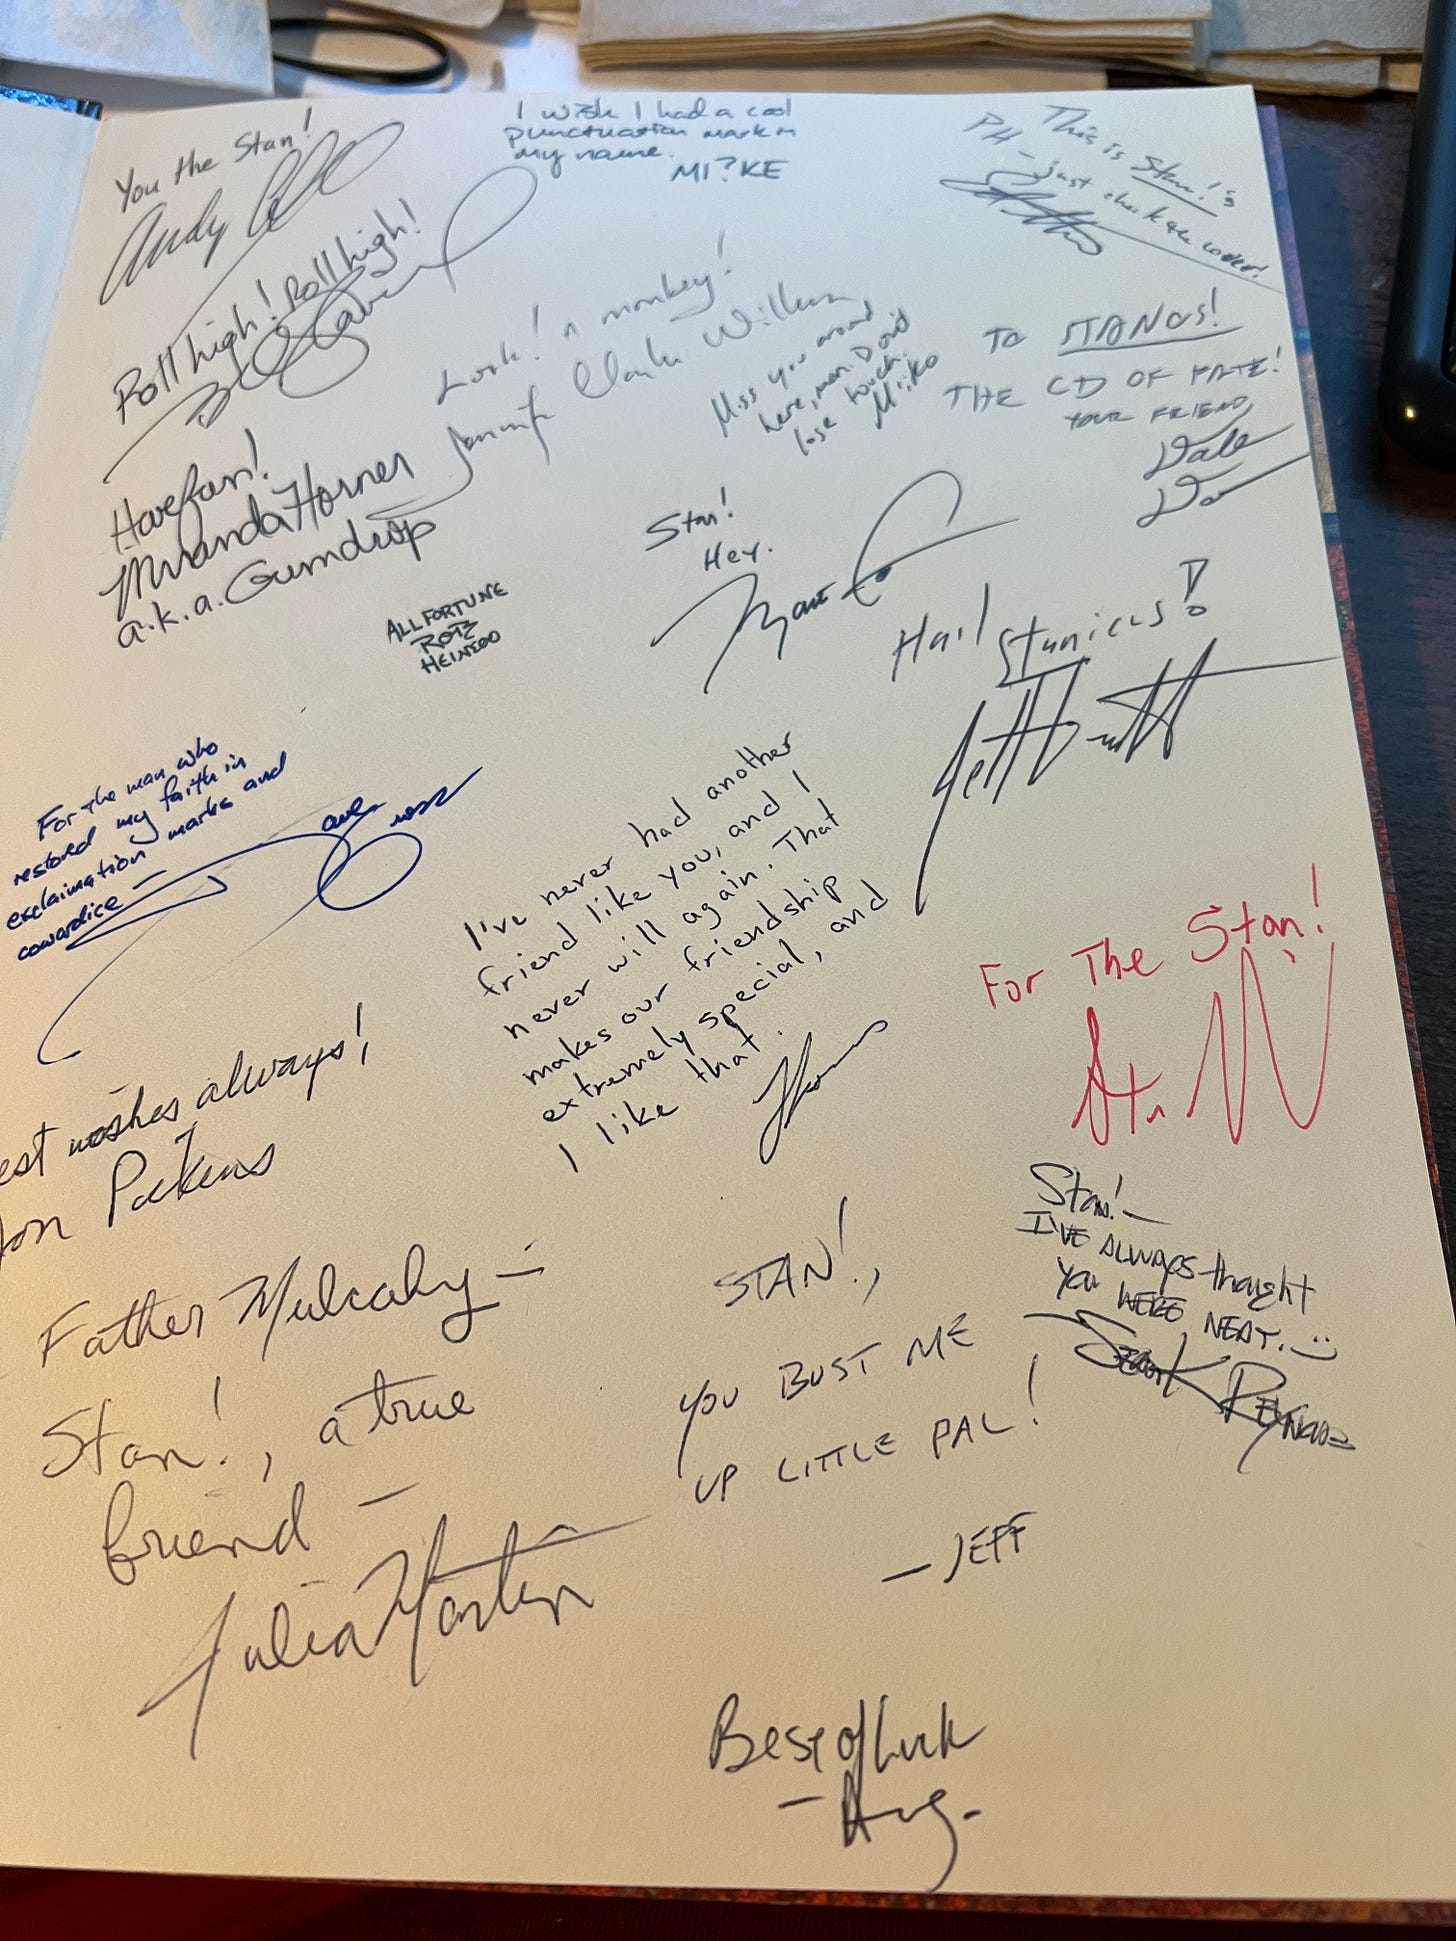 You the Stan!
Andy
I wish I had a cool
punctuation mark in
my name.
MI?KE
This is Stan!'s
PH - just check the cover!
Roll high! Roll high!
Look! A monkey!
Jennifer Clarke Wilkes
Miss you around
here, man. Don't
lose touch.
Mriko
To STANCS!
THE CD OF FATE!
YOUR FRIEND,
Dale
Have fun!
Miranda Horner
a.k.a. Gumdrop
Stan!
Hey.
ALL FORTUNE
HEINSOO
Hail
Stanicus!
For the man who
restored my faith in
exclaimation marks and
cowardice –
Dave Gross
I've never had another
friend like you, and I
never will again. That
makes our friendship
extremely special, and
I like that.
Thomas
For The Stan!
est wishes always!
on Pickens
Stan! –
I'VE ALWAYS thought
you WERE NEAT.
Father Mulcahy –
Stan!, a true
friend –
Julia Martin
STAN!,
YOU BUST ME
UP LITTLE PAL!
– JEFF
Best of Luck